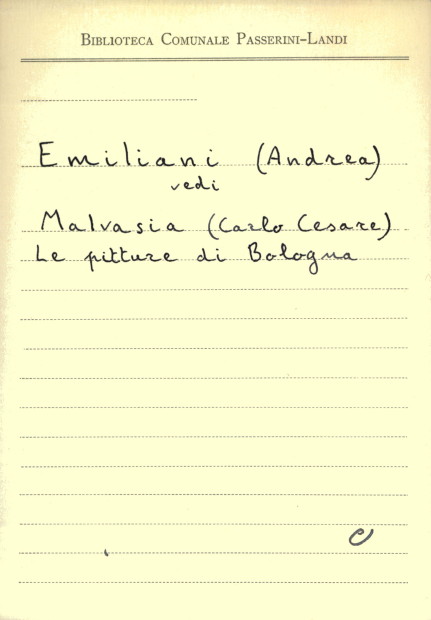 BIBLIOTECA COMUNALE PASSERINI-LANDI
Emiliani (Andrea)
vedi
Malvasia (Carlo Cesare)
Le pitture di Bologna